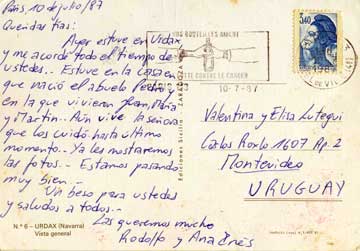 París, 10 de julio/87
Queridas tías:
Ayer estuve en Urdax
y me acordé todo el tiempo de
ustedes.. Estuve en la casa en
que nació el abuelo Pedro y
en la que vivieron Juan, María
y Martín.. Aún vive la señora
que los cuidó hasta último
momento.. Ya les mostraremos
las fotos.- Estamos pasando
muy bien..-
Un beso para ustedes
y saludos a todos..-
Las queremos mucho
Rodolfo y Ana Inés
N.º 6 - URDAX (Navarra)
Vista general
Ediciones Sicilia
ZARAGOZA
CONTRE LE CANCER
10-7-87
0,40
Valentina y Elisa Lutegui
Carlos Roxlo 1607 Ap. 2
Montevideo
URUGUAY